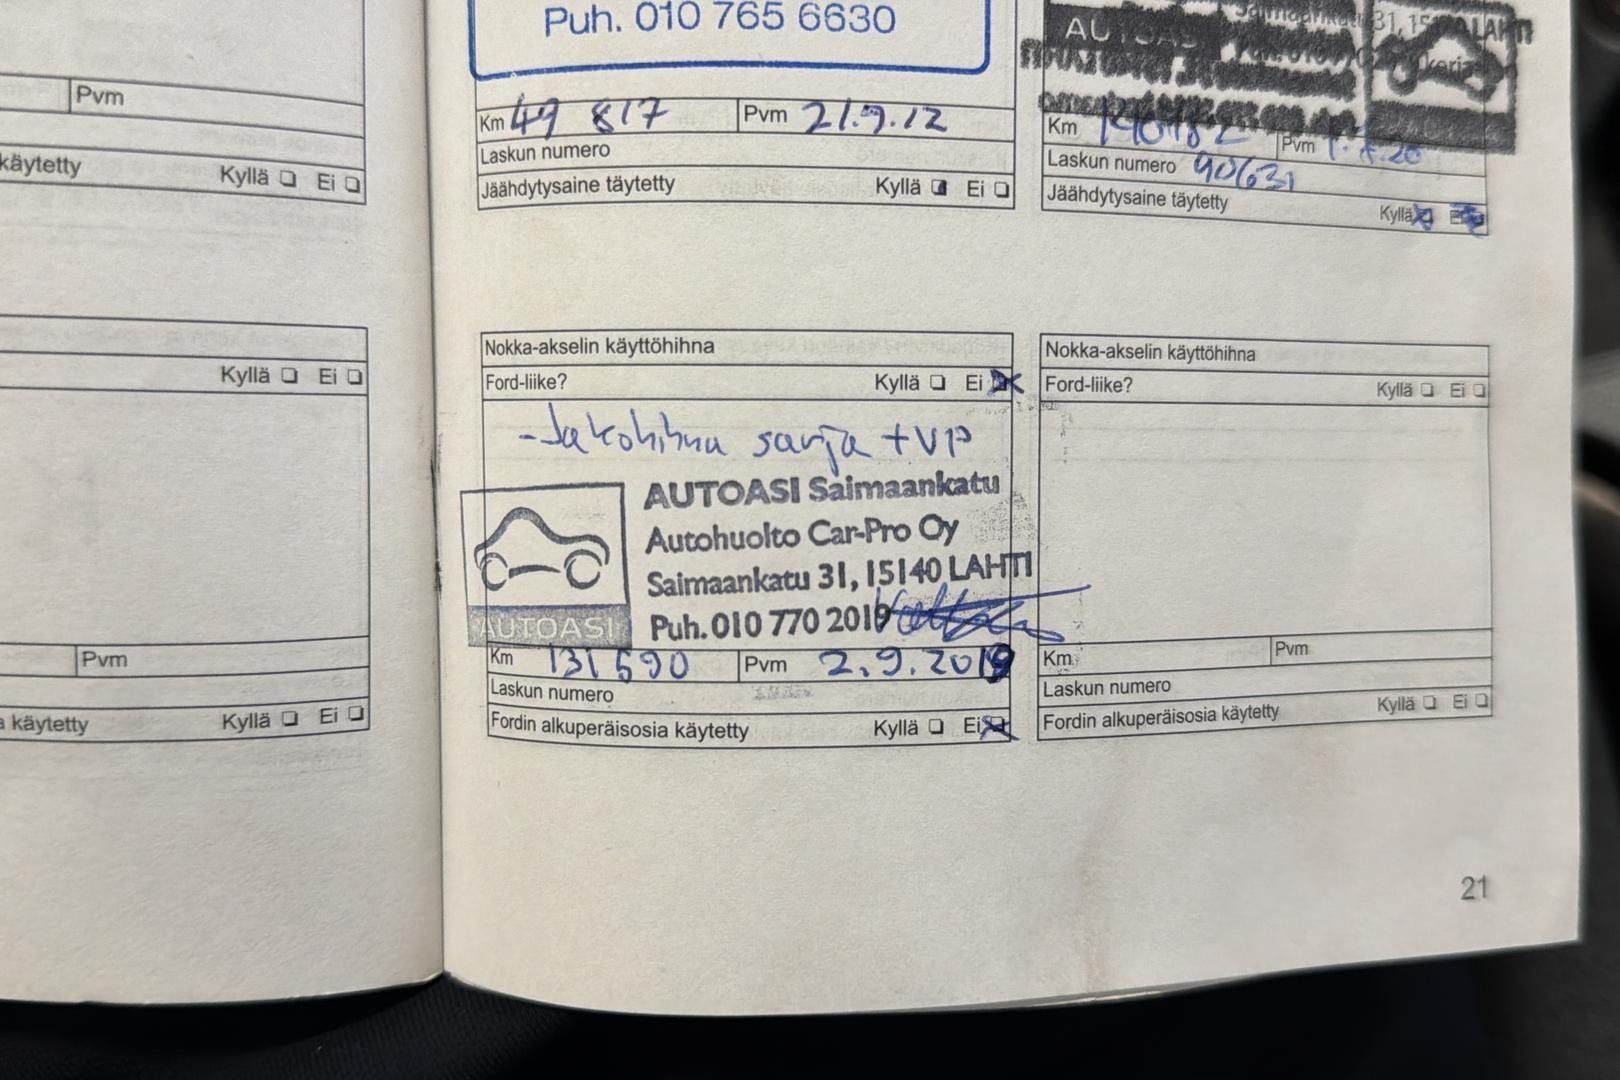 Puh. 010 765 6630
Km 49 817 Pvm 21.9.12
Laskun numero
Jäähdytysaine täytetty Kyllä Ei
AUTOASI
31, LAHTI
Km 140182 Pvm
Laskun numero 90631
Jäähdytysaine täytetty
Kyllä Ei
Pvm
käytetty Kyllä Ei
Kyllä Ei
Pvm
käytetty Kyllä Ei
Nokka-akselin käyttöhihna
Ford-liike? Kyllä Ei
-Jakohihna sarja + VP
AUTOASI Saimaankatu
Autohuolto Car-Pro Oy
Saimaankatu 31, 15140 LAHTI
Puh. 010 770 2019
AUTOASI
Km 131590 Pvm 2.9.2019
Laskun numero
Fordin alkuperäisosia käytetty Kyllä Ei
Nokka-akselin käyttöhihna
Ford-liike? Kyllä Ei
Km Pvm
Laskun numero
Fordin alkuperäisosia käytetty Kyllä Ei
21